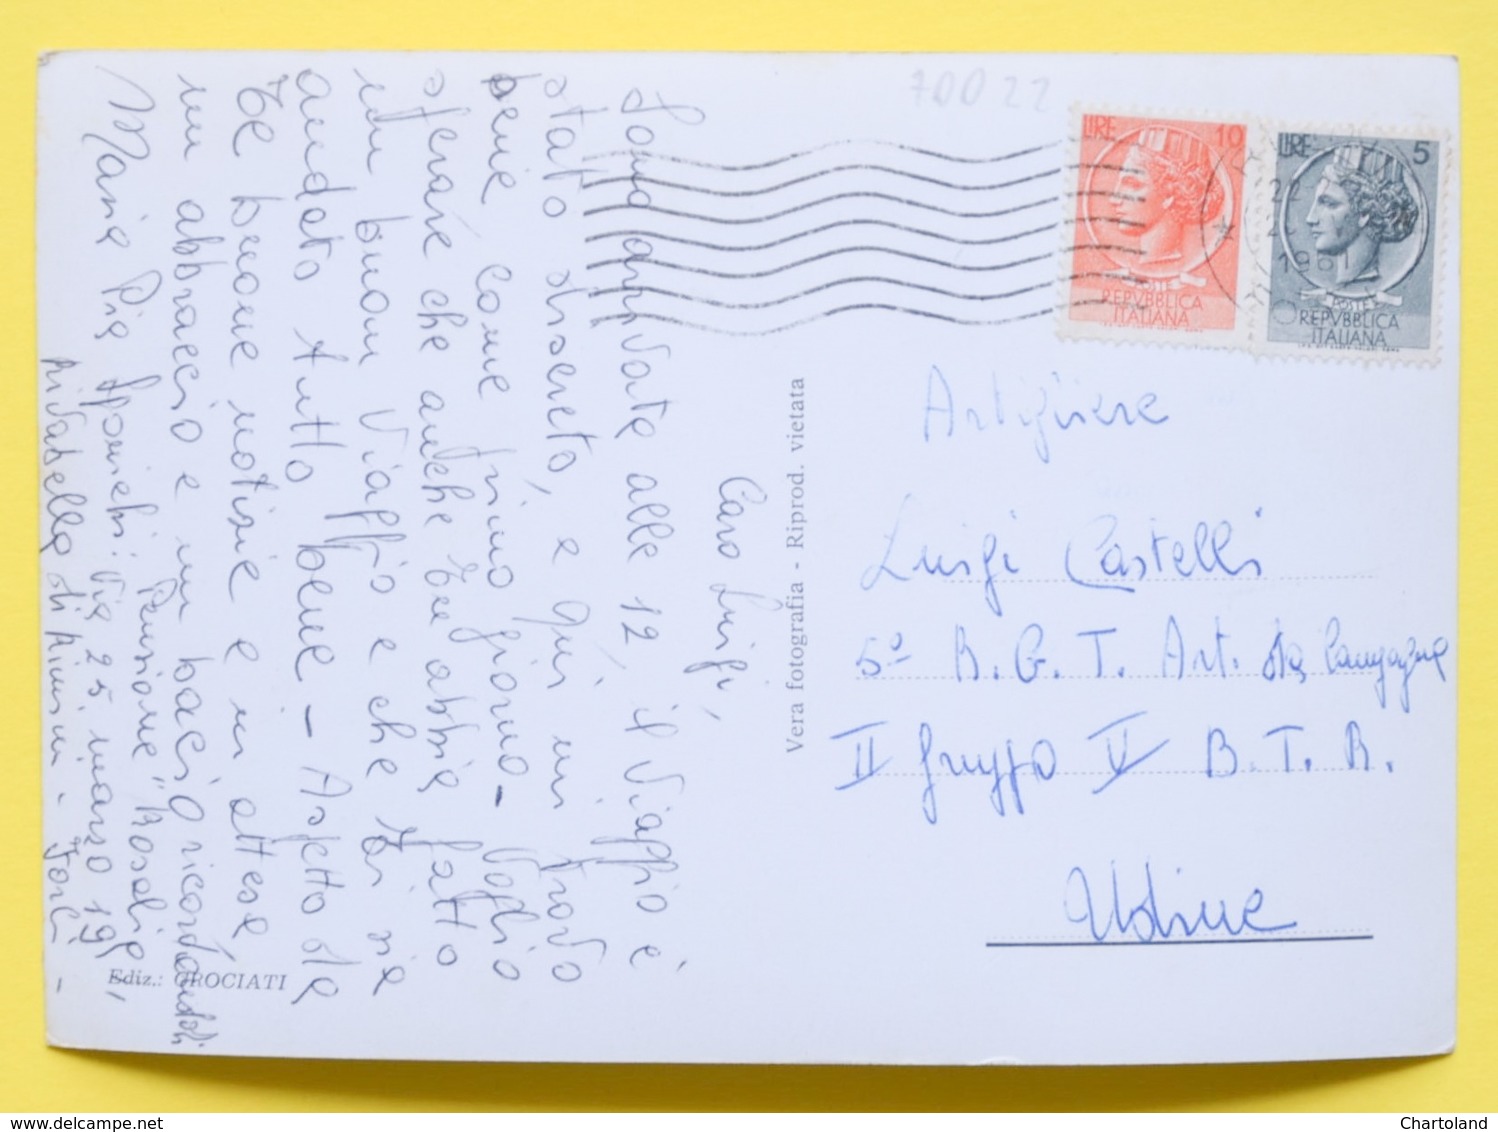 Caro Luigi,
Sono arrivata alle 12, il viaggio è
stato discreto, e qui mi trovo
bene come primo giorno - Voglio
sperare che anche tu abbia fatto
un buon viaggio e che ti sia
andato tutto bene - Aspetto da
te buone notizie e in attesa
un abbraccio e un bacio ricordandoti
Maria Pia
Spensieri: Pensione "Rosalia"
Via 25 marzo 19,
Rivabella di Rimini - Forlì -
Vera fotografia - Riprod. vietata
Ediz.: CROCIATI
70022
LIRE 10
REPVBBLICA
ITALIANA
LIRE 5
POSTE
REPVBBLICA
ITALIANA
22
1961
Artigliere
Luigi Castelli
5º R.G.T. Art. da Campagna
II Gruppo V B.T.R.
Udine
www.delcampe.net
Chartoland